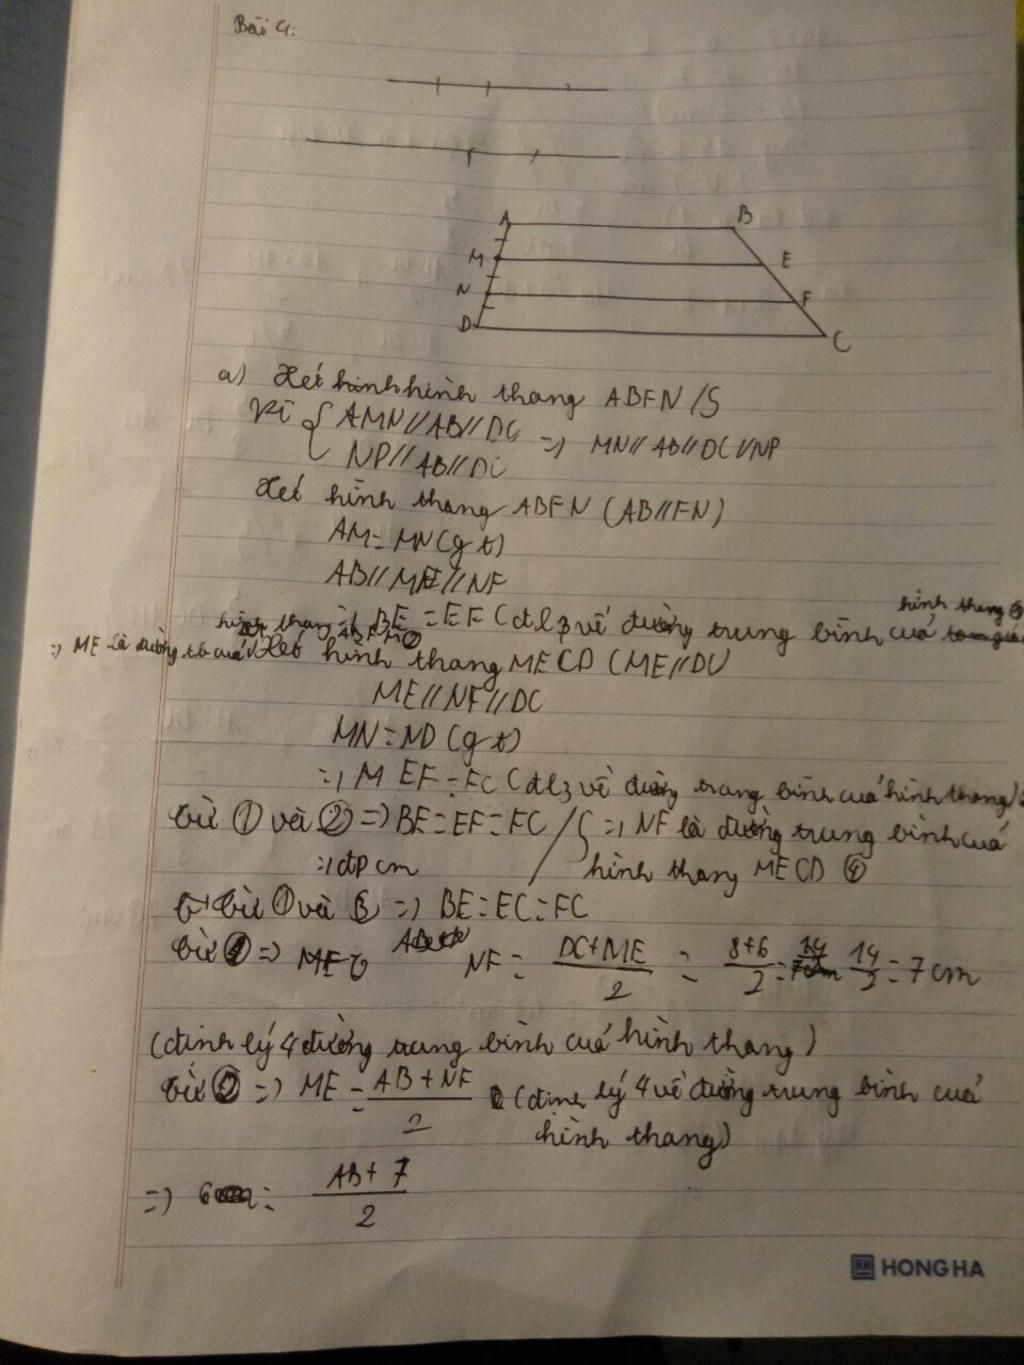 Bài 4:
A B
M E
N F
D C
a) Xét hình hình thang ABFN /S
Vì { AMN // AB // DC => MN // AB // DC // NP
NP // AB // DC
Xét hình thang ABFN (AB // FN)
AM = MN (gt)
AB // ME // NF
=> BE = EF (đl3 về đường trung bình cuả hình thang
=> ME là đường tb cuả hình thang ABFN ②
Xét hình thang MECD (ME // DC)
ME // NF // DC
MN = ND (gt)
=> EF = FC (đl3 về đường trung bình cuả hình thang)
từ ① và ② => BE = EF = FC
=> NF là đường trung bình cuả
=> đpcm
hình thang MECD ④
từ ① và 3 => BE = EC = FC
từ ④ => NF = DC + ME / 2 = 8 + 6 / 2 = 14 / 2 = 7 cm
(định lý 4 đường trung bình cuả hình thang)
từ ② => ME = AB + NF / 2 (định lý 4 về đường trung bình cuả
hình thang)
=> 6 = AB + 7 / 2
HONG HA